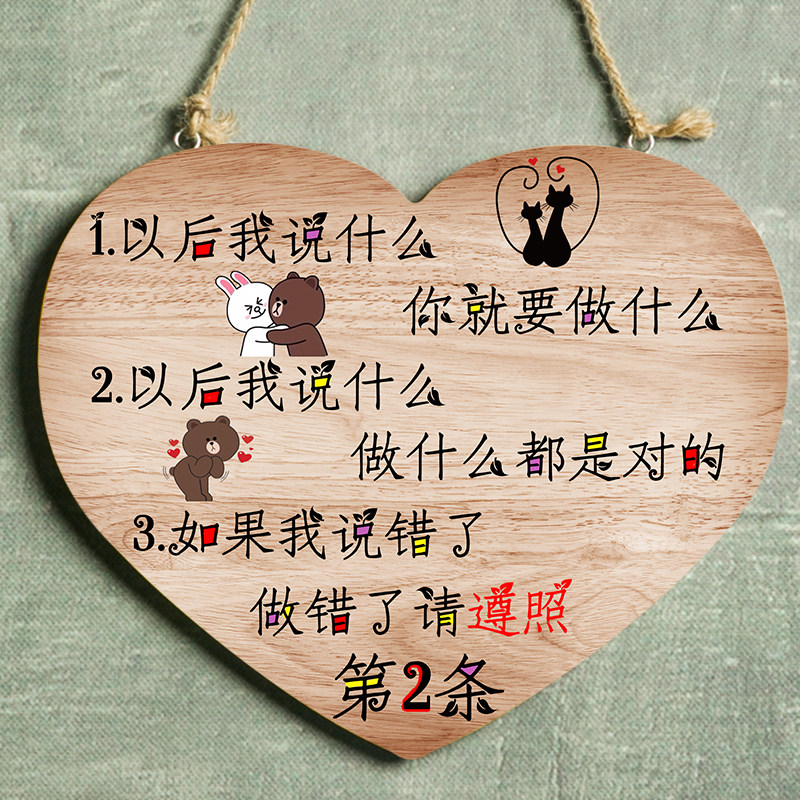 1.以后我说什么
你就要做什么
2.以后我说什么
做什么都是对的
3.如果我说错了
做错了请遵照
第2条